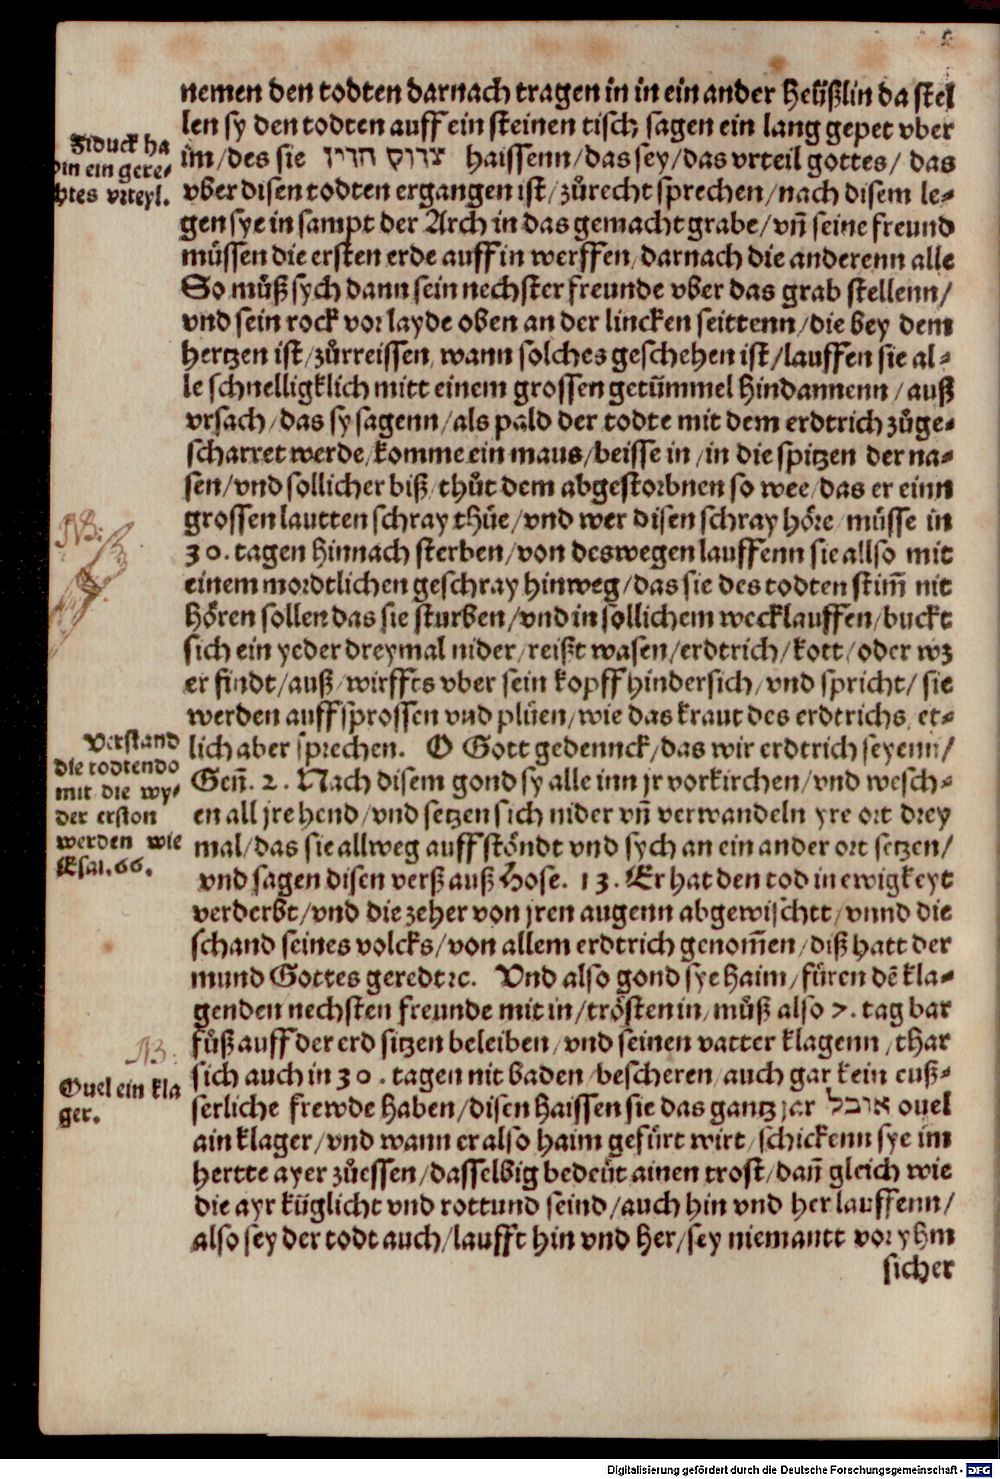 nemen den todten darnach tragen in in ein ander heüßlin da stel
len sy den todten auff ein steinen tisch sagen ein lang gepet vber
Ziduck ha
din ein gere⸗
chtes vrteyl.
im/des sie צדוק הדין haissenn/das sey/das vrteil gottes/ das
vber disen todten ergangen ist/zůrecht sprechen/nach disem le⸗
gen sye in sampt der Arch in das gemacht grabe/vñ seine freund
müssen die ersten erde auff in werffen/darnach die anderenn alle
So můß sych dann sein nechster freunde vber das grab stellenn/
vnd sein rock vor layde oben an der lincken seittenn/die bey dem
hertzen ist/zůrreissen/wann solches geschehen ist/lauffen sie al⸗
le schnelligklich mitt einem grossen getümmel hindannenn/auß
vrsach/das sy sagenn/als pald der todte mit dem erdtrich zůge⸗
scharret werde/komme ein maus/beisse in/in die spitzen der na⸗
sen/vnd sollicher biß/thůt dem abgestorbnen so wee/das er einn
grossen lautten schray thüe/vnd wer disen schray höre/müsse in
NB:
30. tagen hinnach sterben/von deswegen lauffenn sie allso mit
einem mordtlichen geschray hinweg/das sie des todten stim̃ nit
hören sollen das sie sturben/vnd in sollichem wecklauffen/buckt
sich ein yeder dreymal nider/reißt wasen/erdtrich/kott/oder wz
er findt/auß/wirffts vber sein kopff hindersich/vnd spricht/sie
werden auffsprossen vnd plüen/wie das kraut des erdtrichs/et⸗
Verstand
die todtendo
mit die wy⸗
der erston
werden wie
Esai. 66.
lich aber sprechen. O Gott gedennck/das wir erdtrich seyenn/
Geñ. 2. Nach disem gond sy alle inn jr vorkirchen/vnd wesch⸗
en all jre hend/vnd setzen sich nider vñ verwandeln yre ort drey
mal/das sie allweg auff stöndt vnd sych an ein ander ort setzen/
vnd sagen disen verß auß Hose. 13. Er hat den tod in ewigkeyt
verderbt/vnd die zeher von jren augenn abgewischtt/vnnd die
schand seines volcks/von allem erdtrich genom̃en/diß hatt der
mund Gottes geredt ꝛc. Vnd also gond sye haim/füren dẽ kla⸗
genden nechsten freunde mit in/trösten in/můß also 7. tag bar
NB:
fůß auff der erd sitzen beleiben/vnd seinen vatter klagenn/thar
Ouel ein kla
ger.
sich auch in 30. tagen nit baden/bescheren/auch gar kein euß⸗
serliche frewde haben/disen haissen sie das gantz jar אובל ouel
ain klager/vnd wann er also haim gefürt wirt/schickenn sye im
hertte ayer zůessen/dasselbig bedeüt ainen trost/dañ gleich wie
die ayr küglicht vnd rottund seind/auch hin vnd her lauffenn/
also sey der todt auch/laufft hin vnd her/sey niemantt vor yhm
sicher
Digitalisierung gefördert durch die Deutsche Forschungsgemeinschaft - DFG